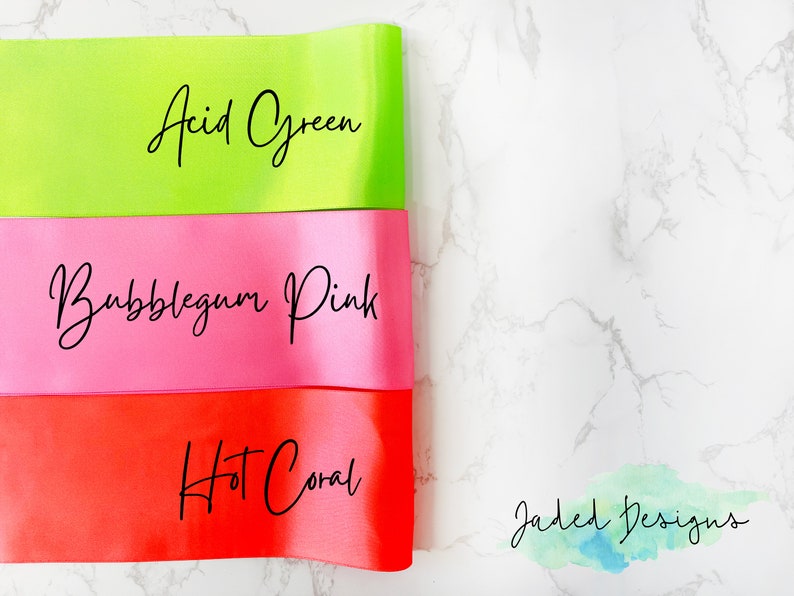 Acid Green
Bubblegum Pink
Hot Coral
Jaded Designs